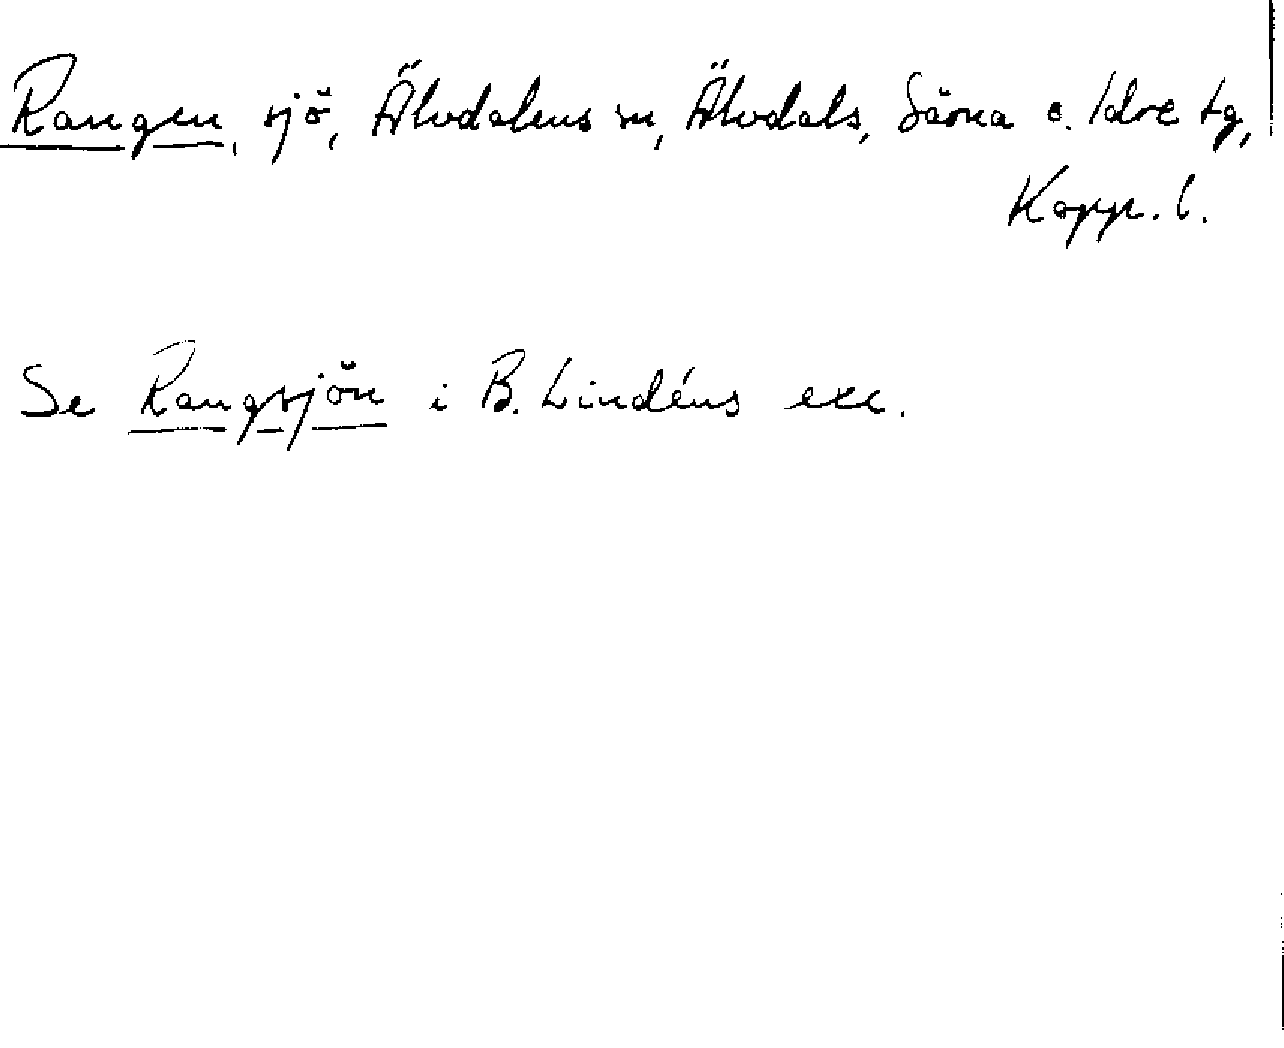 Rangen, sjö, Älvdalens sn, Älvdals, Särna o. Idre tg,
Kopp. l.
Se Rangsjön i B. Lindéns exc.